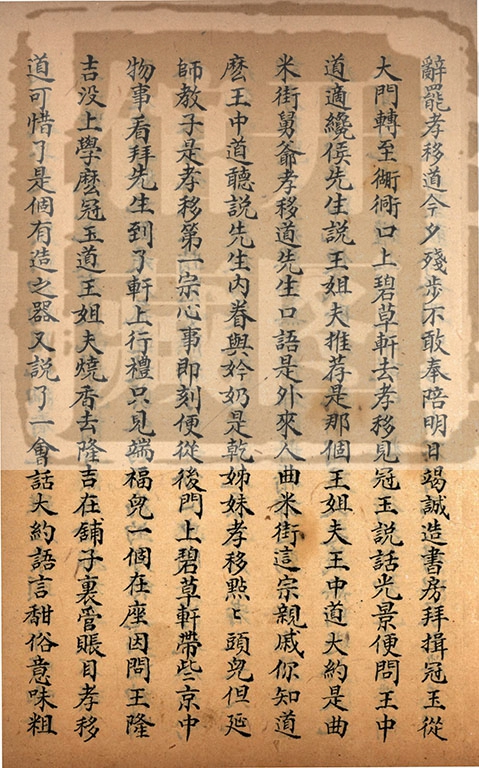 辭罷孝移道今夕殘步不敢奉陪明日竭誠造書房拜揖冠玉從
大門轉至衚衕口上碧草軒去孝移見冠玉說話光景便問王中
道適纔侯先生說王姐夫推荐是那個王姐夫王中道大約是曲
米街舅爺孝移道先生口語是外來人曲米街這宗親戚你知道
麽王中道聽說先生內眷與妗奶是乾姊妹孝移㸃〻頭兒但延
師教子是孝移第一宗心事即刻便從後門上碧草軒帶些京中
物事看拜先生到了軒上行禮只見端福兒一個在座因問王隆
吉没上學麽冠玉道王姐夫燒香去隆吉在舖子裏管賬目孝移
道可惜了是個有造之器又說了一會話大約語言甜俗意味粗